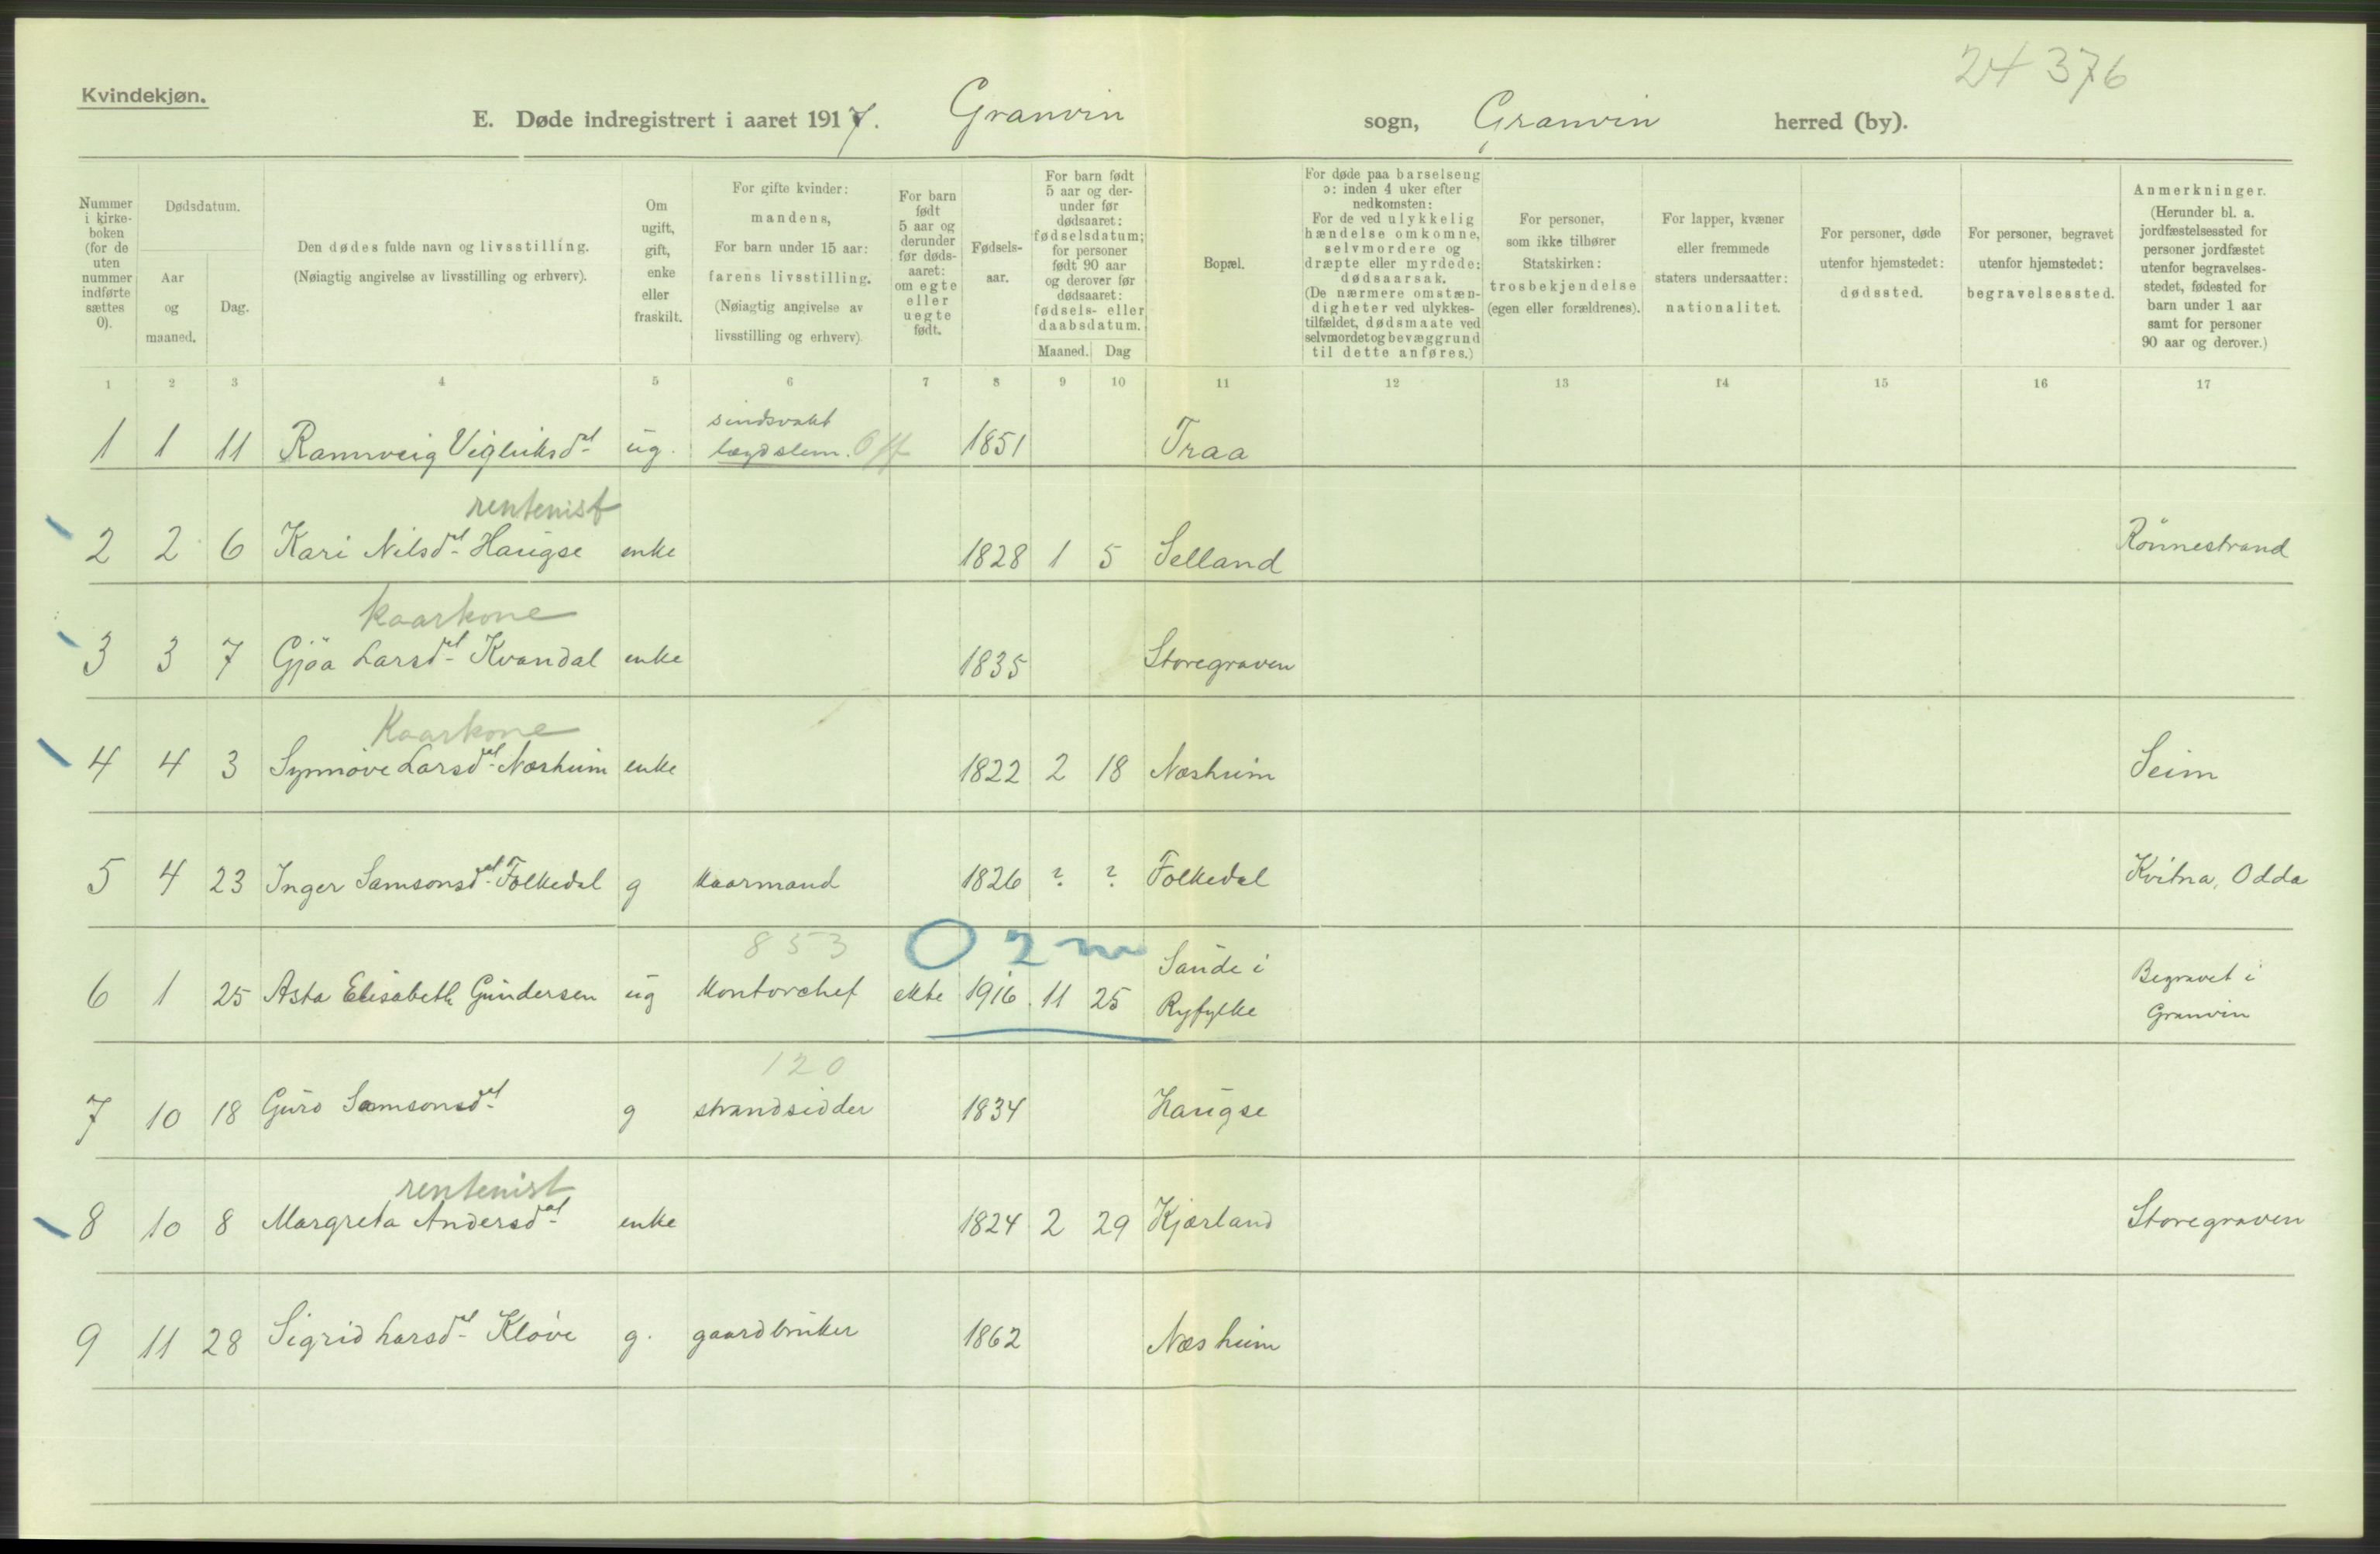 24 376
Kvindekjøn.
E. Døde indregistrert i aaret 1917. Granvin sogn, Granvin herred (by).
Nummer i kirke-boken (for de uten nummer indførte sættes 0).
Dødsdatum.
Aar og maaned.
Dag.
Den dødes fulde navn og livsstilling. (Nøiagtig angivelse av livsstilling og erhverv).
Om ugift, gift, enke eller fraskilt.
For gifte kvinder: mandens, For barn under 15 aar: farens livsstilling. (Nøiagtig angivelse av livsstilling og erhverv)
For barn født 5 aar og derunder før døds-aaret: om egte eller uegte født.
Fødsels-aar.
For barn født 5 aar og der-under før dødsaaret: fødselsdatum; for personer født 90 aar og derover før dødsaaret: fødsels- eller daabsdatum.
Maaned. Dag
Bopæl.
For døde paa barselseng ɔ: inden 4 uker efter nedkomsten: For de ved ulykkelig hændelse omkomne, selvmordere og dræpte eller myrdede: dødsaarsak. (De nærmere omstæn-digheter ved ulykkes-tilfældet, dødsmaate ved selvmordet og bevæggrund til dette anføres.)
For personer, som ikke tilhører Statskirken: trosbekjendelse (egen eller forældrenes).
For lapper, kvæner eller fremmede staters undersaatter: nationalitet.
For personer, døde utenfor hjemstedet: dødssted.
For personer, begravet utenfor hjemstedet: begravelsessted.
Anmerkninger. (Herunder bl. a. jordfæstelsessted for personer jordfæstet utenfor begravelses-stedet, fødested for barn under 1 aar samt for personer 90 aar og derover.)
1 2 3 4 5 6 7 8 9 10 11 12 13 14 15 16 17
sindsvakt
1 1 11 Rannveig Vigleiksdtr ug. lægdslem. Off 1851 Traa
rentenist
2 2 6 Kari Nilsdtr Haugse enke 1828 1 5 Selland Rönnestrand
kaarkone
3 3 7 Gjöa Larsdtr Kvandal enke 1835 Storegraven
Kaarkone
4 4 3 Synnöve Larsdtr Næsheim enke 1822 2 18 Næsheim Seim
5 4 23 Inger Samsonsdtr Folkedal g kaarmand 1826 ? ? Folkedal Kvitna, Odda
853 0 2 m
6 1 25 Asta Elisabeth Gundersen ug kontorchef ekte 1916 11 25 Sande i Ryfylke Begravet i Granvin
120
7 10 18 Guro Samsonsdtr g strandsidder 1834 Haugse
rentenist
8 10 8 Margreta Andersdtr enke 1824 2 29 Kjærland Storegraven
9 11 28 Sigrid Larsdtr Klöve g. gaardbruker 1862 Næsheim